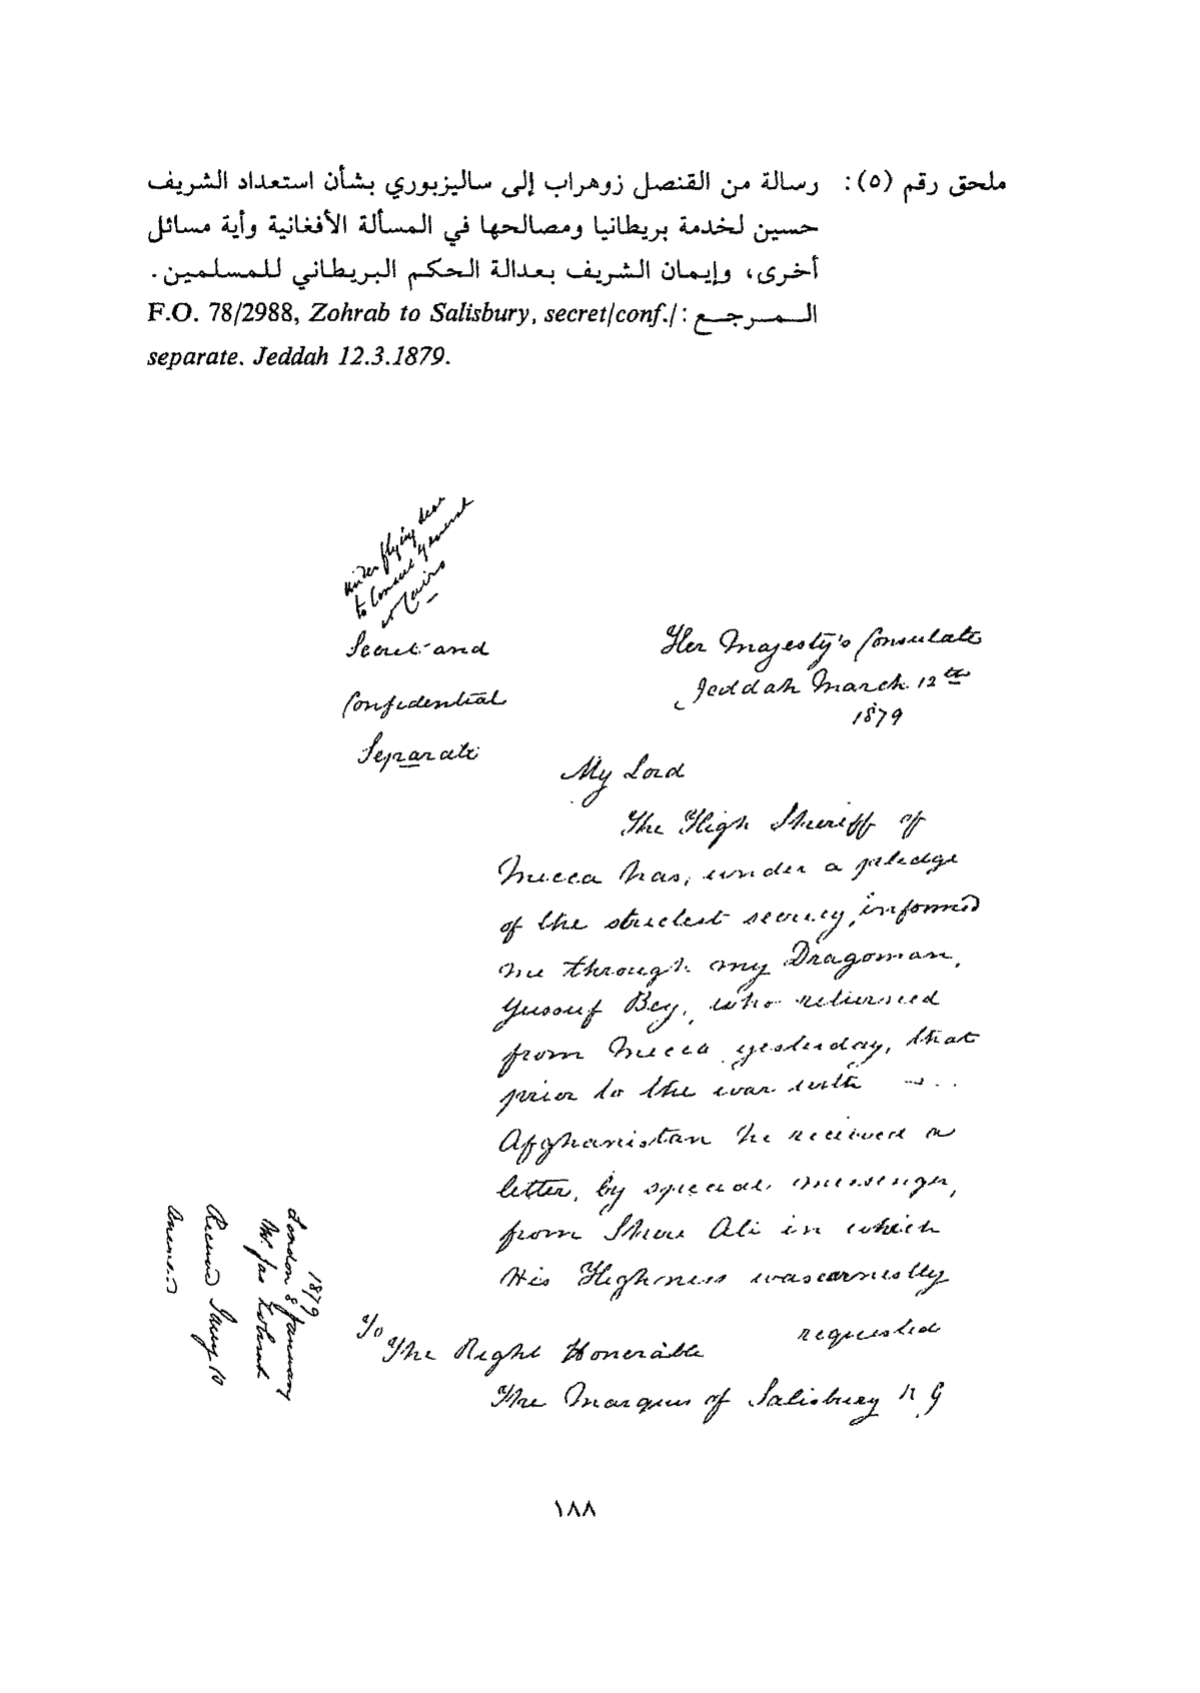 ملحق رقم (٥): رسالة من القنصل زوهراب إلى ساليزبوري بشأن استعداد الشريف
حسين لخدمة بريطانيا ومصالحها في المسألة الأفغانية وأية مسائل
أخرى، وإيمان الشريف بعدالة الحكم البريطاني للمسلمين.
المرجع: F.O. 78/2988, Zohrab to Salisbury, secret/conf./
separate. Jeddah 12.3.1879.
under flying
to Consul General
Cairo
Secret and
Confidential
Separate
Her Majesty's Consulate
Jeddah March 12th
1879
My Lord
The High Sheriff of
Mecca has, under a pledge
of the strictest secrecy, informed
me through my Dragoman,
Yussuf Bey, who returned
from Mecca yesterday, that
prior to the war with
Afghanistan he received a
letter, by special messenger,
from Shere Ali in which
His Highness was earnestly
requested
To
The Right Honorable
The Marquis of Salisbury K G
1879
London 8 January
Mr. Jas Zohrab
Received Jany 10
١٨٨